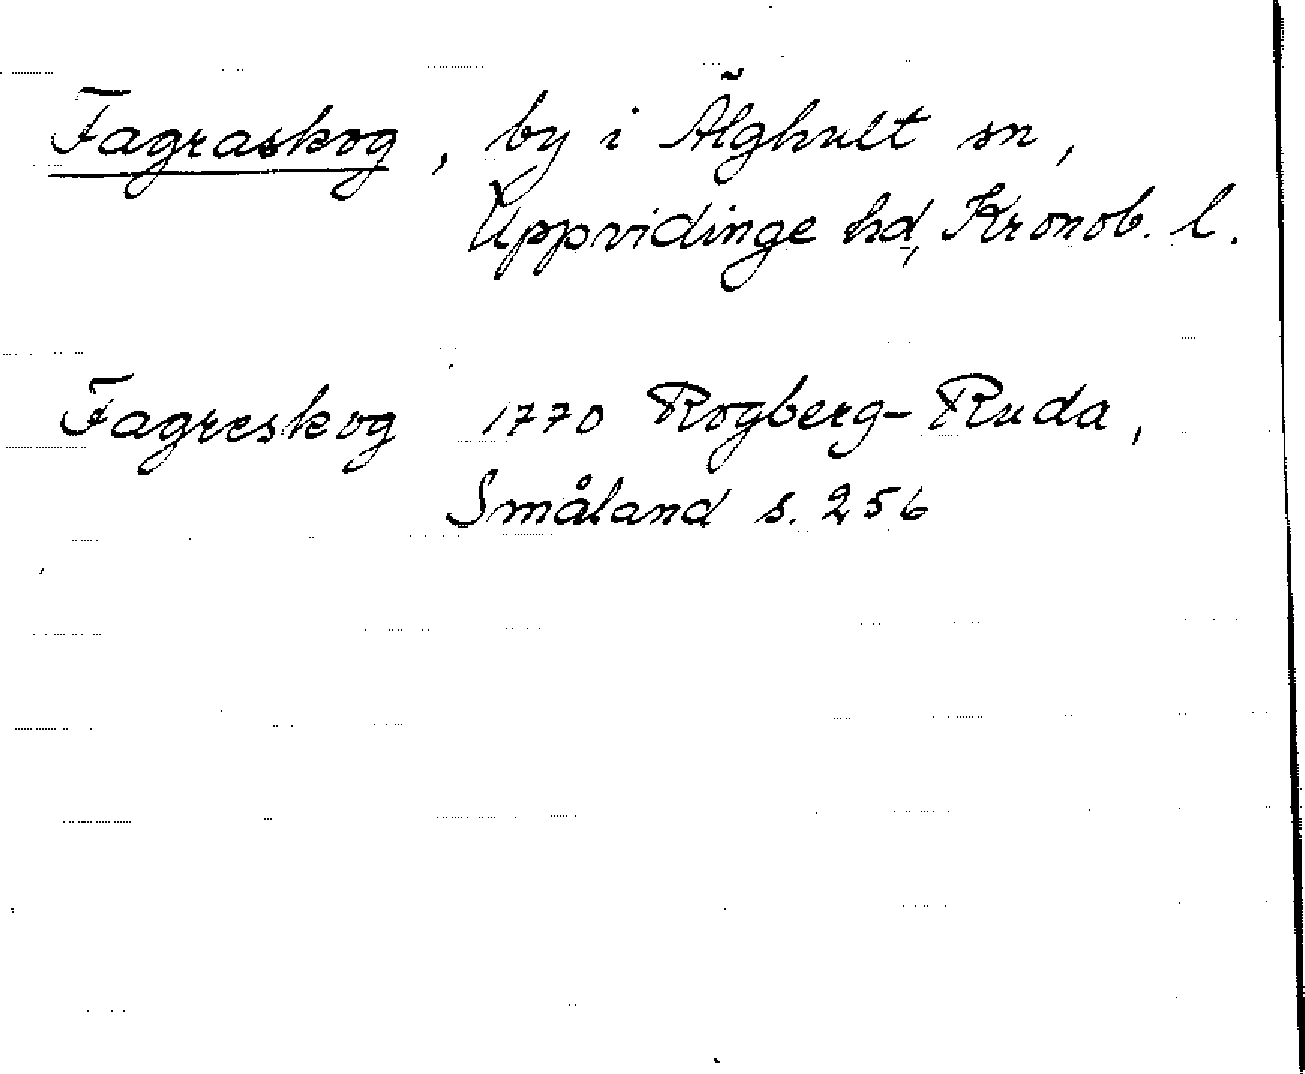 Fagraskog, by i Älghult sn,
Uppvidinge hd, Kronob. l.
Fagreskog 1770 Rogberg-Ruda,
Småland s. 256